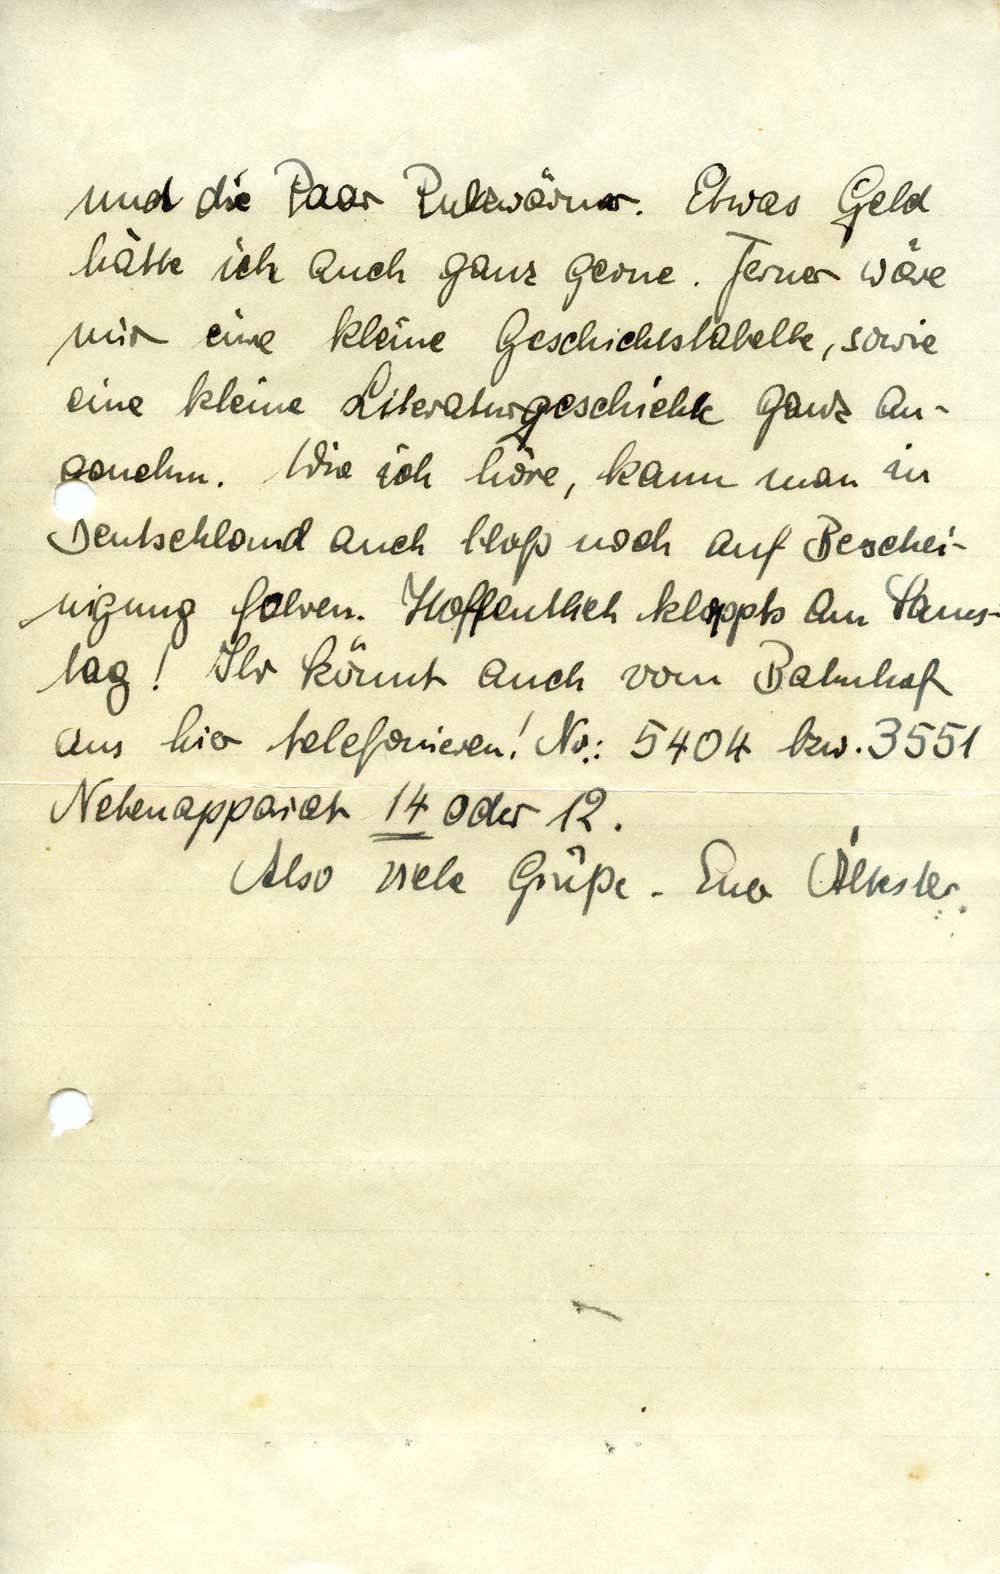 und die Paar Pulswärmer. Etwas Geld
hätte ich auch ganz gerne. Ferner wäre
mir eine kleine Geschichtstabelle, sowie
eine kleine Literaturgeschichte ganz an-
genehm. Wie ich höre, kann man in
Deutschland auch bloß noch auf Beschei-
nigung fahren. Hoffentlich klappts am Sams-
tag! Ihr könnt auch vom Bahnhof
aus hier telefonieren! No.: 5404 bzw. 3551
Nebenapparat 14 oder 12.
Also viele Grüße - Euer Ältester.